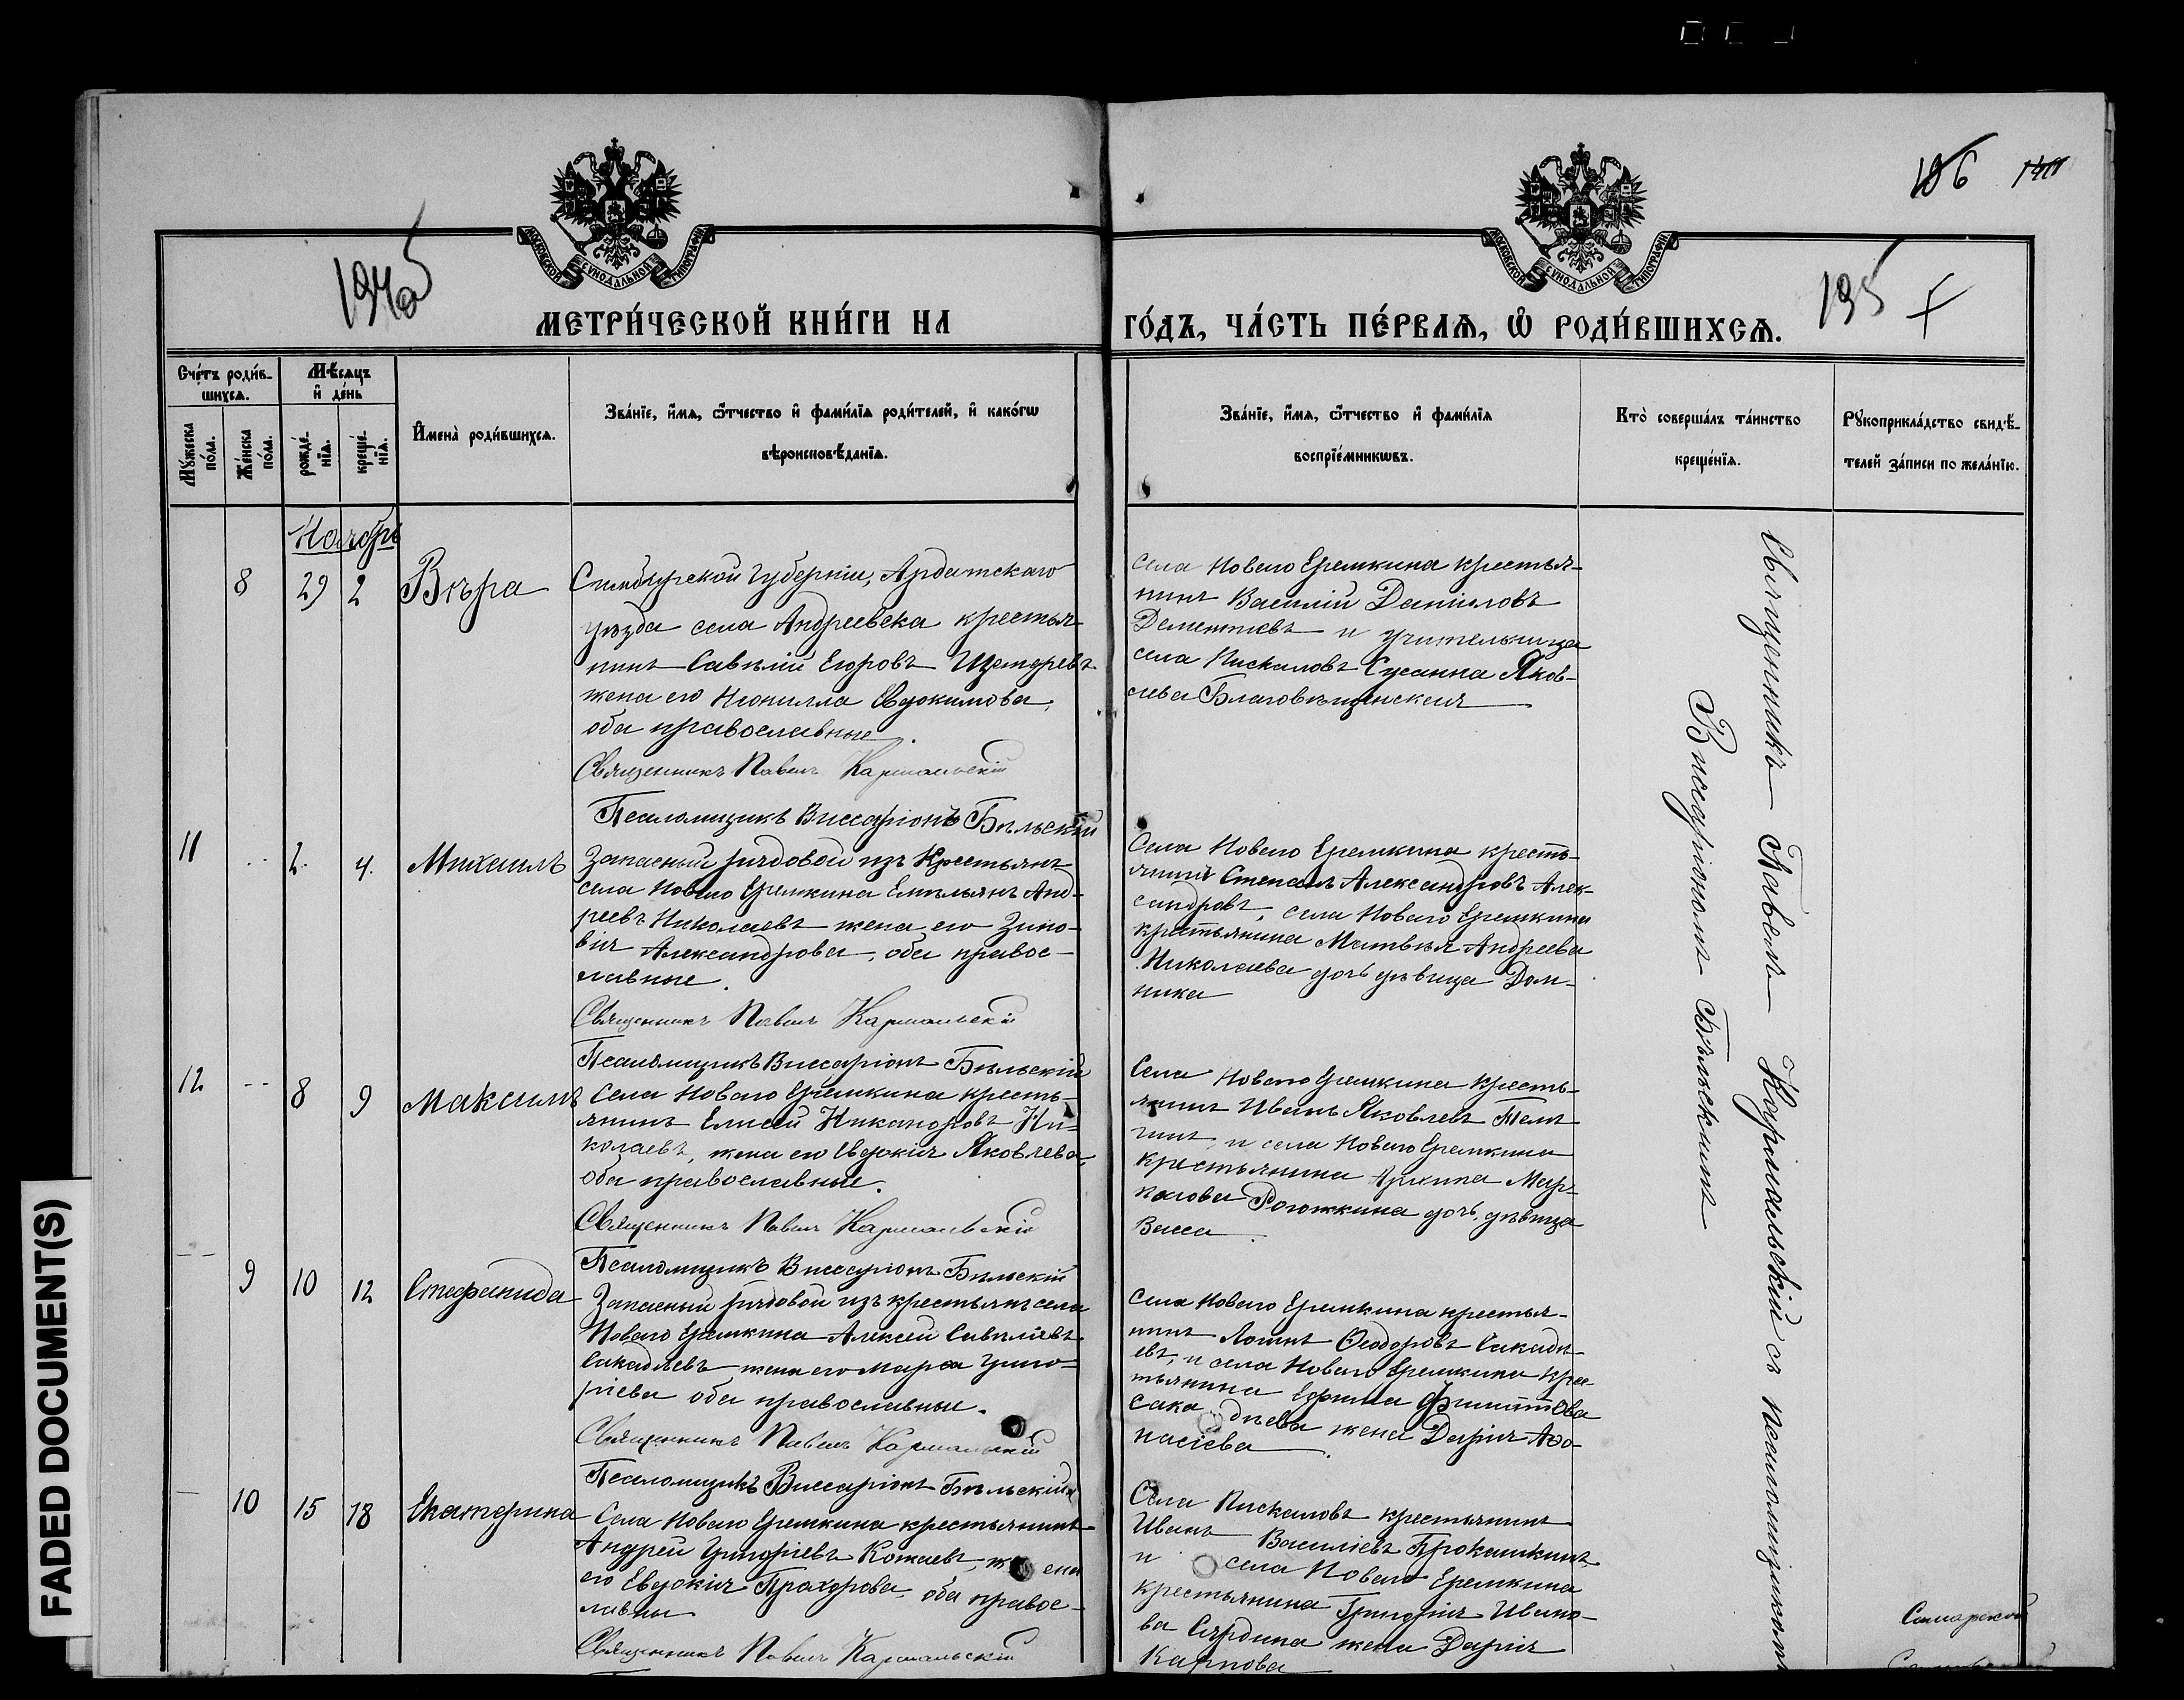 FADED DOCUMENT(S)
106
195
195
МОСКОВСКОЙ СУНОДАЛЬНОЙ ТИПОГРАФІИ
МОСКОВСКОЙ СУНОДАЛЬНОЙ ТИПОГРАФІИ
МЕТРИ́ЧЕСКОЙ КНИ́ГИ НА
ГО́ДЪ, ЧА́СТЬ ПЕ́РВАѦ, Ѡ҆ РОДИ́ВШИХСѦ.
Сче́тъ роди́в-
шихсѧ.
Мѣ́сѧцъ
и҆ де́нь
Мꙋ́жеска
по́ла.
Же́нска
по́ла.
рожде́-
нїѧ.
креще́-
нїѧ.
И҆мена̀ роди́вшихсѧ.
Зва́нїе, и҆́мѧ, ѻ҆́тчество и҆ фами́лїѧ роди́телей, и҆ како́гѡ
вѣроисповѣ́данїѧ.
Зва́нїе, и҆́мѧ, ѻ҆́тчество и҆ фами́лїѧ
воспрїе́мникѡвъ.
Кто̀ соверша́лъ та́инство
креще́нїѧ.
Рꙋкоприкла́дство свидѣ́-
телей за́писи по жела́нїю.
Ноябрь
8 29 2 Вѣра
Симбирской губерніи, Ардатскаго
уѣзда села Андреевка крестья-
нинъ Савелій Егоровъ
жена его Неонилла Евдокимова,
оба православные.
Священникъ Павелъ Кармальскій
Псаломщикъ Виссаріонъ Бѣльскій
села Новаго Еремкина крестья-
нинъ Василій Даніиловъ
Дементіевъ и учительница
села Пискаловъ Сусанна Яков-
лева Благовѣщенская
11 2. 4. Михаилъ
Запасный рядовой изъ крестьянъ
села Новаго Еремкина Емельянъ Анд-
реевъ Николаевъ жена его Зино-
вія Александрова, оба правос-
лавные.
Священникъ Павелъ Кармальскій
Псаломщикъ Виссаріонъ Бѣльскій
Села Новаго Еремкина кресть-
янинъ Степанъ Александровъ Алек-
сандровъ, села Новаго Еремкина
крестьянина Матвѣя Андреева
Николаева дочь дѣвица Дом-
ника
12 8 9 Максимъ
Села Новаго Еремкина кресть-
янинъ Елисей Никаноровъ Ни-
колаевъ, жена его Евдокія Яковлева,
оба православные.
Священникъ Павелъ Кармальскій
Псаломщикъ Виссаріонъ Бѣльскій
Села Новаго Еремкина кресть-
янинъ Иванъ Яковлевъ
и села Новаго Еремкина
крестьянина
Рогожкина дочь, дѣвица
Васса.
9 10 12 Стефанида
Запасный рядовой изъ крестьянъ села
Новаго Еремкина Алексей Савеліевъ
Сакадѣевъ жена его Марѳа Григо-
ріева оба православные.
Священникъ Павелъ Кармальскій
Псаломщикъ Виссаріонъ Бѣльскій
Села Новаго Еремкина крестья-
нинъ Логинъ Ѳеодоровъ Сакадѣ-
евъ, и села Новаго Еремкина крес-
тьянина Ефима Филиппова
Сакадѣева жена Дарія Аѳа-
насіева.
10 15 18 Екатерина
Села Новаго Еремкина крестьянинъ
Андрей Григоріевъ Кожаевъ, жена
его Евдокія Прохорова, оба правос-
лавны
Священникъ Павелъ Кармальскій
Села Пискаловъ крестьянинъ
Иванъ Василіевъ Прокашкинъ
и села Новаго Еремкина
крестьянина Григорія Ивано-
ва Сярдина жена Дарія
Карпова
Священникъ Павелъ Кармальскій съ псаломщикомъ
Виссаріономъ Бѣльскимъ
Самарской